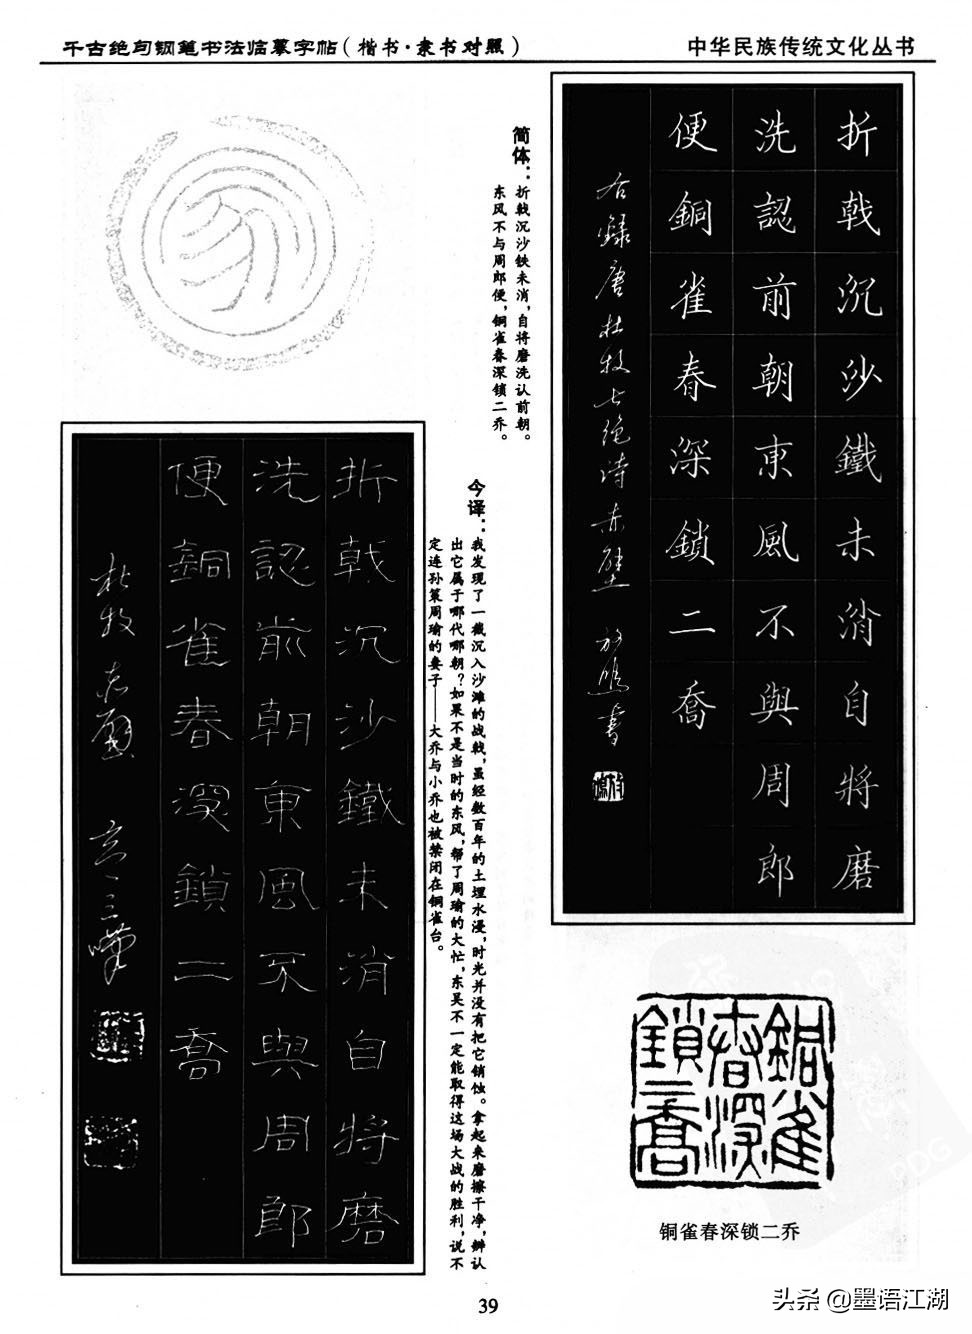 千古绝句钢笔书法临摹字帖（楷书·隶书对照）
中华民族传统文化丛书
折戟沉沙鐵未消自將磨
洗認前朝東風不與周郎
便銅雀春深鎖二喬
右録唐杜牧七绝诗赤壁
书
简体：折戟沉沙铁未消，自将磨洗认前朝。
东风不与周郎便，铜雀春深锁二乔。
今译：我发现了一截沉入沙滩的战戟，虽经数百年的土埋水浸，时光并没有把它销蚀。拿起来磨擦干净，辨认
出它属于哪代哪朝？如果不是当时的东风，帮了周瑜的大忙，东吴不一定能取得这场大战的胜利，说不
定连孙策周瑜的妻子——大乔与小乔也被禁闭在铜雀台。
折戟沉沙鐵未消自將磨
洗認前朝東風不與周郎
便銅雀春深鎖二喬
杜牧赤壁
銅雀
春深
鎖二喬
铜雀春深锁二乔
39
头条 @墨语江湖